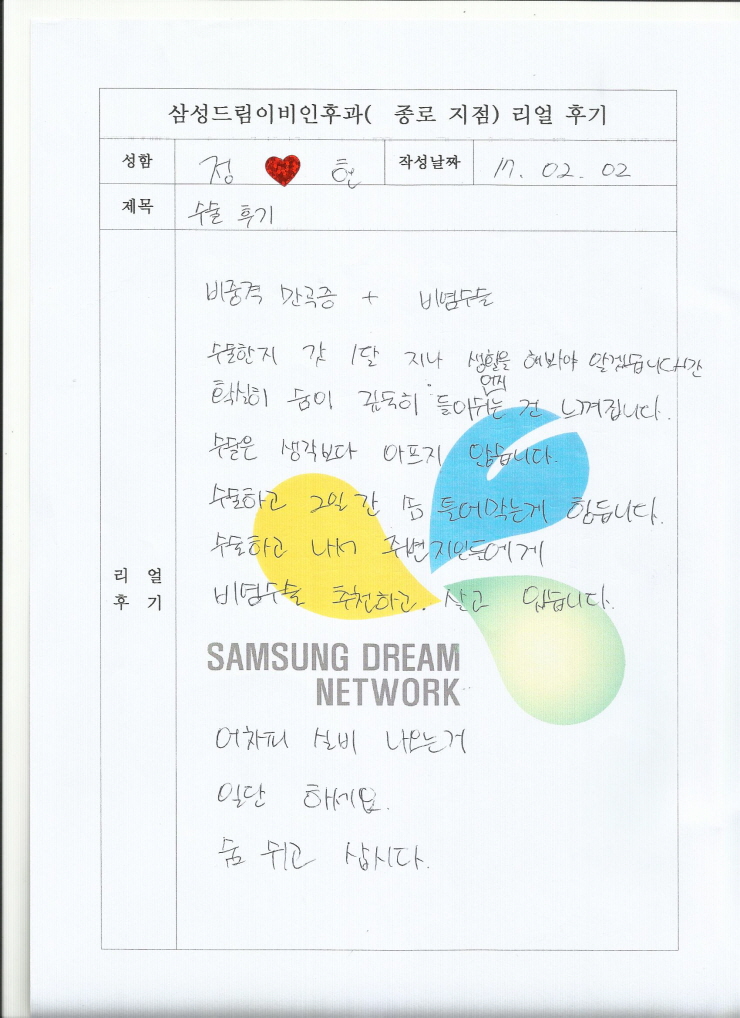 삼성드림이비인후과( 종로 지점) 리얼 후기
성함 정 현 작성날짜 17. 02. 02
제목 수술 후기
리 얼
후 기
비중격 만곡증 + 비염수술
수술한지 갓 1달 지나 생활을 해봐야 알겠습니다만
확실히 숨이 들이쉬는 건 느껴집니다.
수술은 생각보다 아프지 않습니다.
수술하고 2일간 솜 틀어막는게 힘듭니다.
수술하고 나서 주변지인들에게
비염수술 추천하고. 살고 있습니다.
SAMSUNG DREAM
NETWORK
어차피 실비 나오는거
일단 하세요.
숨 쉬고 삽시다.